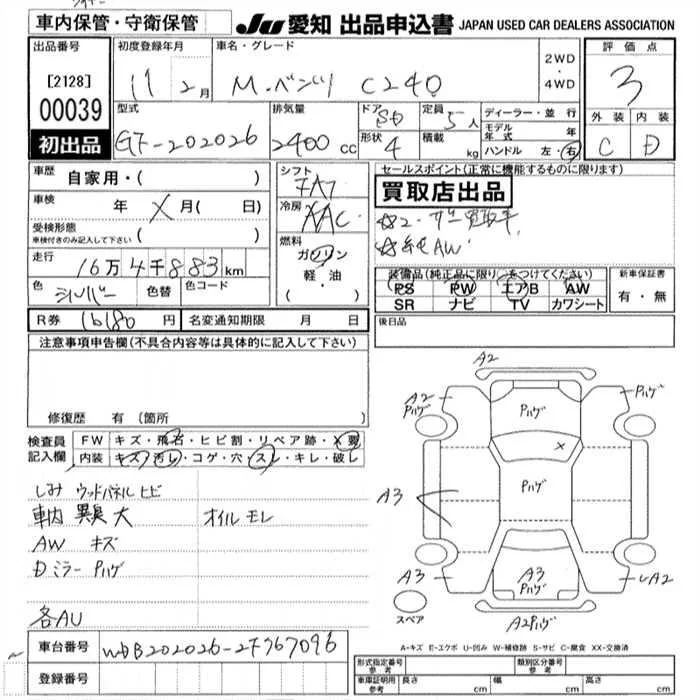 車内保管・守衛保管 JU 愛知 出品申込書 JAPAN USED CAR DEALERS ASSOCIATION
出品番号 [2128] 00039 初出品
初度登録年月 11 2月
車名・グレード M・ベンツ C240
2WD・4WD
評価点 3
外装 C 内装 D
型式 GF-202026
排気量 2400 cc
ドア 形状 4
定員 5人 積載 kg
ディーラー・並行
モデル年式 年
ハンドル 左・右
車歴 自家用・( )
車検 年 X月( 日)
受検形態 車検付きのみ記入して下さい ( )
走行 16万4千883km
色 シルバー 色替 色コード
シフト FAT
冷房 AAC
燃料 ガソリン 軽・油 ・( )
セールスポイント(正常に機能するものに限ります)
買取店出品
☆純AW
装備品(純正品に限り○をつけてください)
PS PW エアB AW
SR ナビ TV カワシート
新車保証書 有・無
後日品
R券 16180円 名変通知期限 月 日
注意事項申告欄(不具合内容等は具体的に記入して下さい)
修復歴 有(箇所 )
検査員記入欄
FW キズ・飛石・ヒビ割・リペア跡・X要
内装 キズ・汚レ・コゲ・穴・スレ・キレ・破レ
しみ ウッドパネル ヒビ
車内 異臭 大 オイル モレ
AW キズ
Dミラー Pハゲ
各AU
A2
A2 Pハゲ
Pハゲ
Pハゲ
X
Pハゲ
A3
A3
A3 Pハゲ
A2
A2Pハゲ
スペア
A-キズ E-エクボ U-凹み W-補修跡 S-サビ C-腐食 XX-交換済
車台番号 WDB202026-2F767096
登録番号
形式指定番号 参考 類別区分番号 参考
車庫証明用 参考 長さ cm 幅 cm 高さ cm